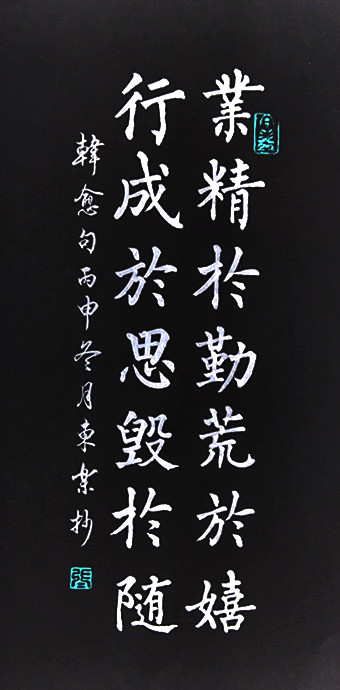 業精於勤荒於嬉
行成於思毀於随
韓愈句丙申冬月東棠抄